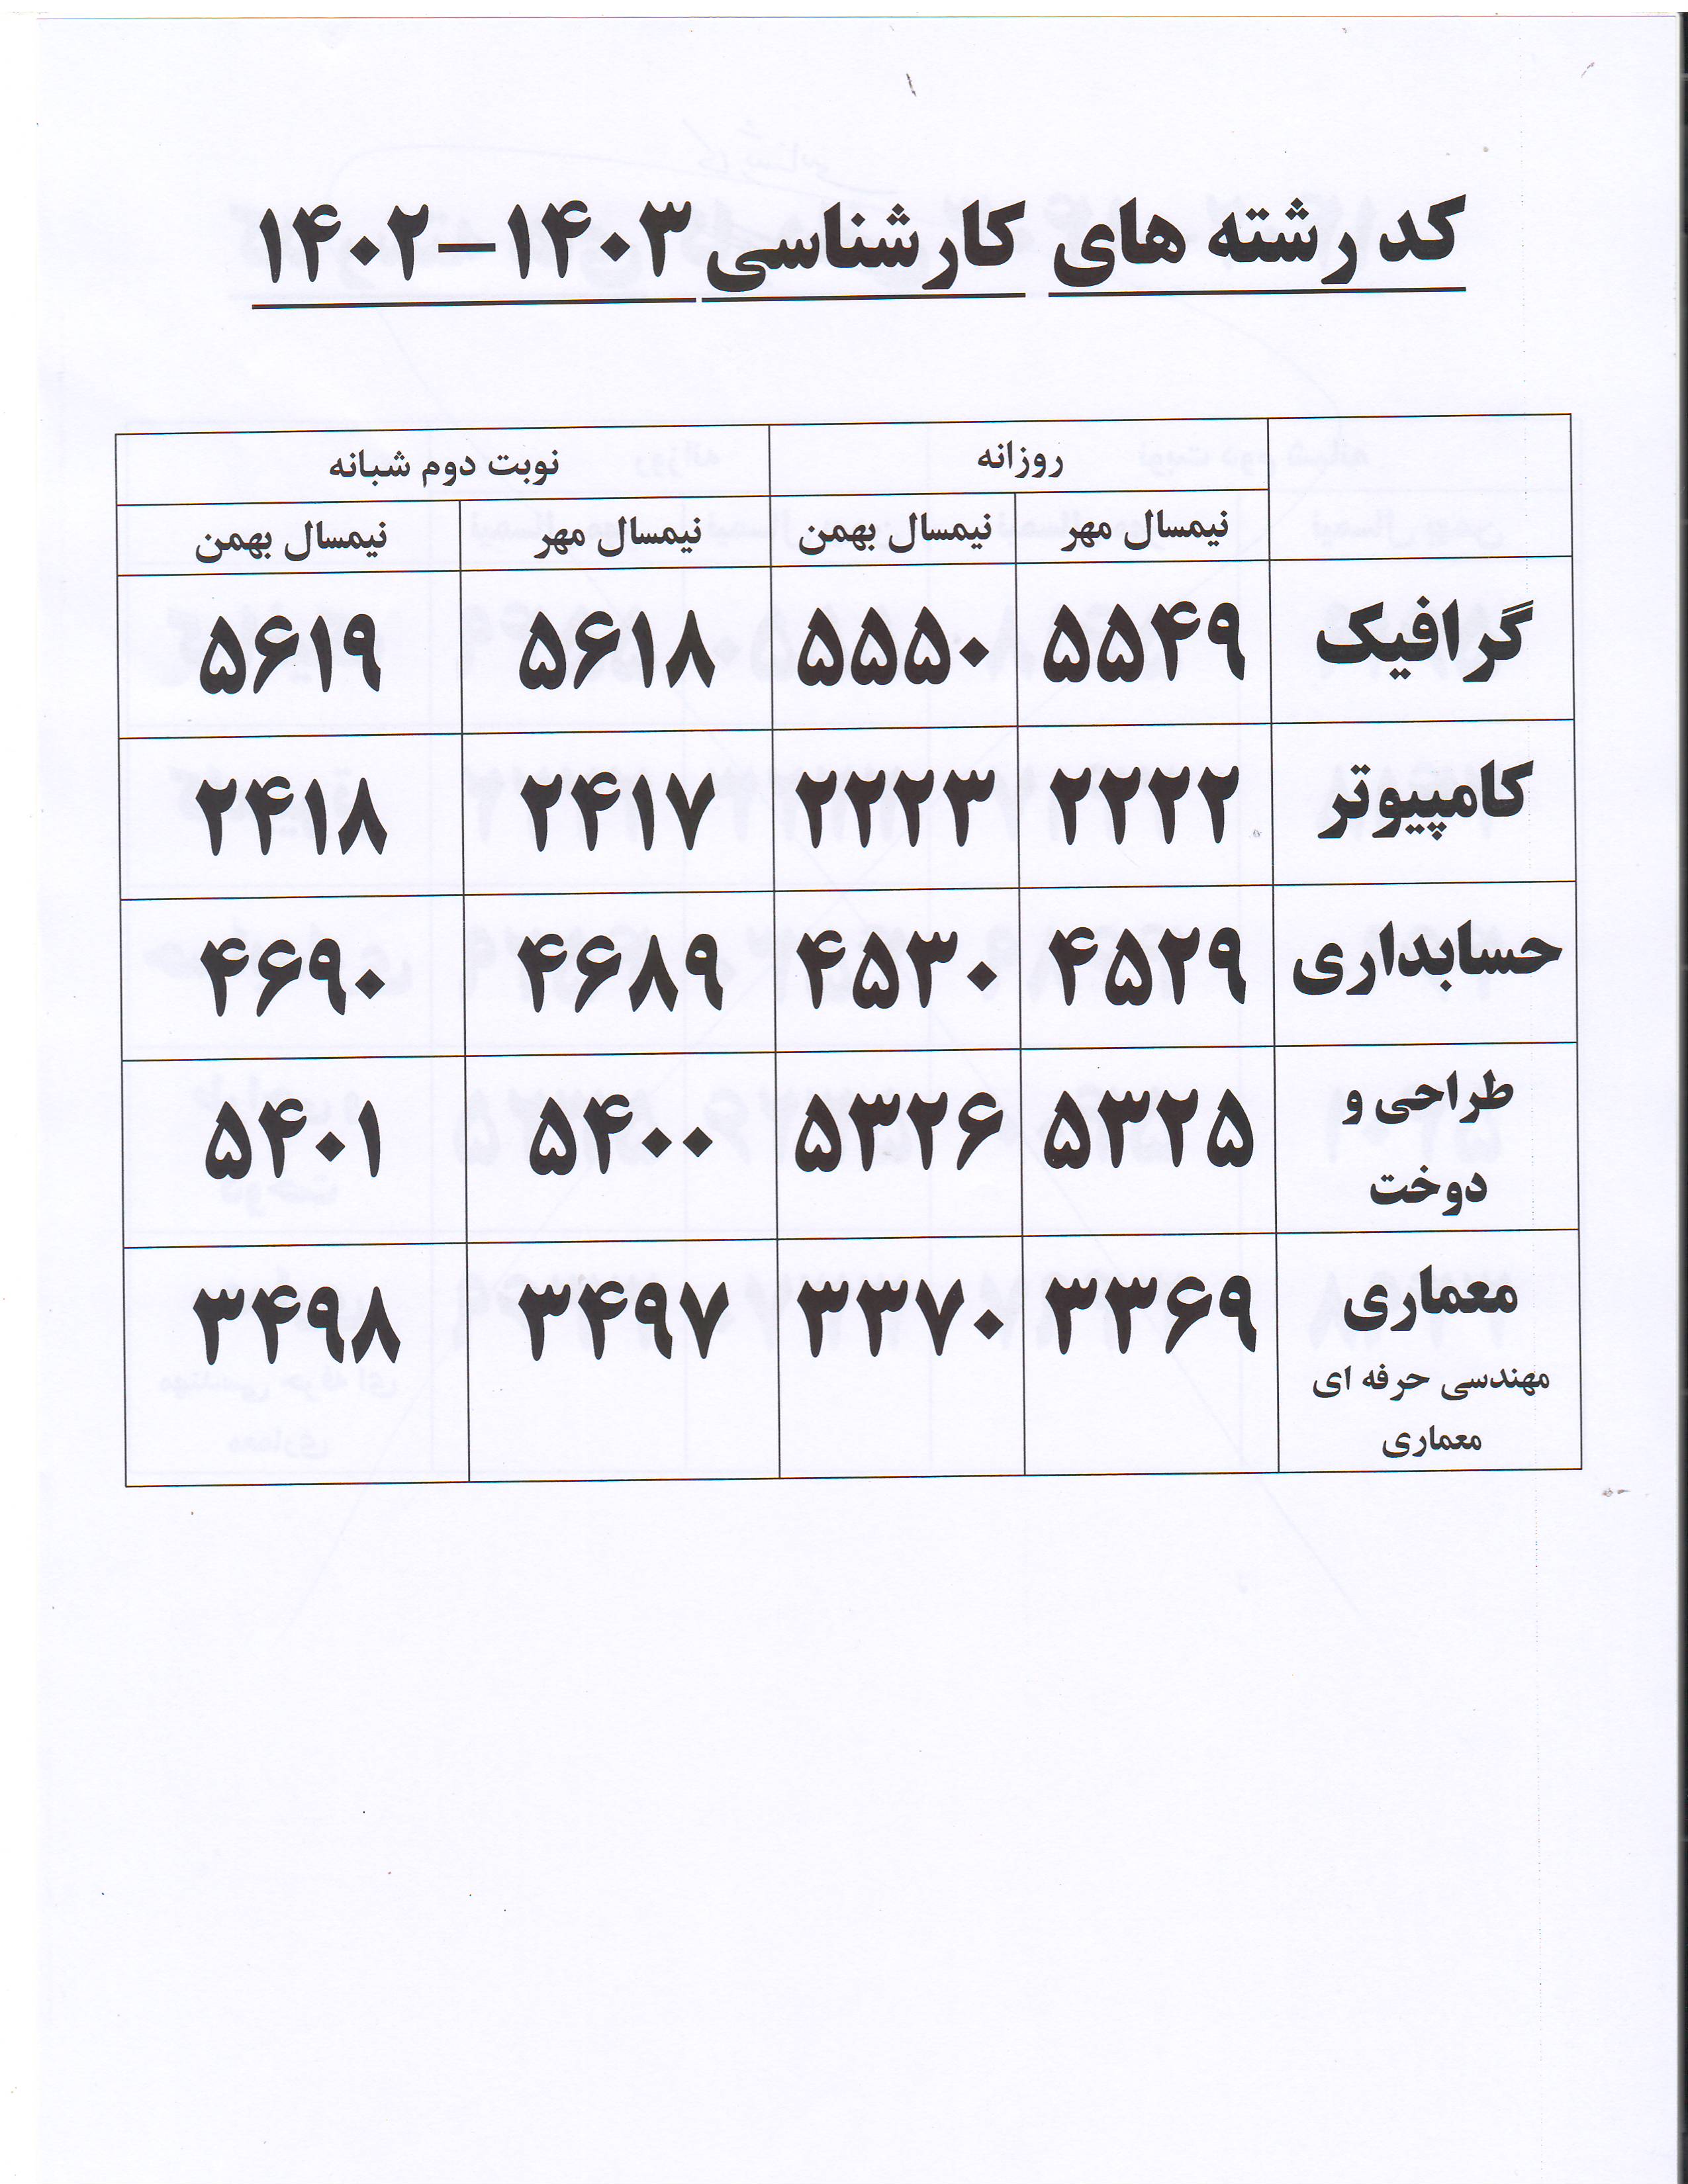 کد رشته های کارشناسی ۱۴۰۳-۱۴۰۲
روزانه نوبت دوم شبانه
نیمسال مهر نیمسال بهمن نیمسال مهر نیمسال بهمن
گرافیک ۵۵۴۹ ۵۵۵۰ ۵۶۱۸ ۵۶۱۹
کامپیوتر ۲۲۲۲ ۲۲۲۳ ۲۴۱۷ ۲۴۱۸
حسابداری ۴۵۲۹ ۴۵۳۰ ۴۶۸۹ ۴۶۹۰
طراحی و ۵۳۲۵ ۵۳۲۶ ۵۴۰۰ ۵۴۰۱
دوخت
معماری ۳۳۶۹ ۳۳۷۰ ۳۴۹۷ ۳۴۹۸
مهندسی حرفه ای
معماری